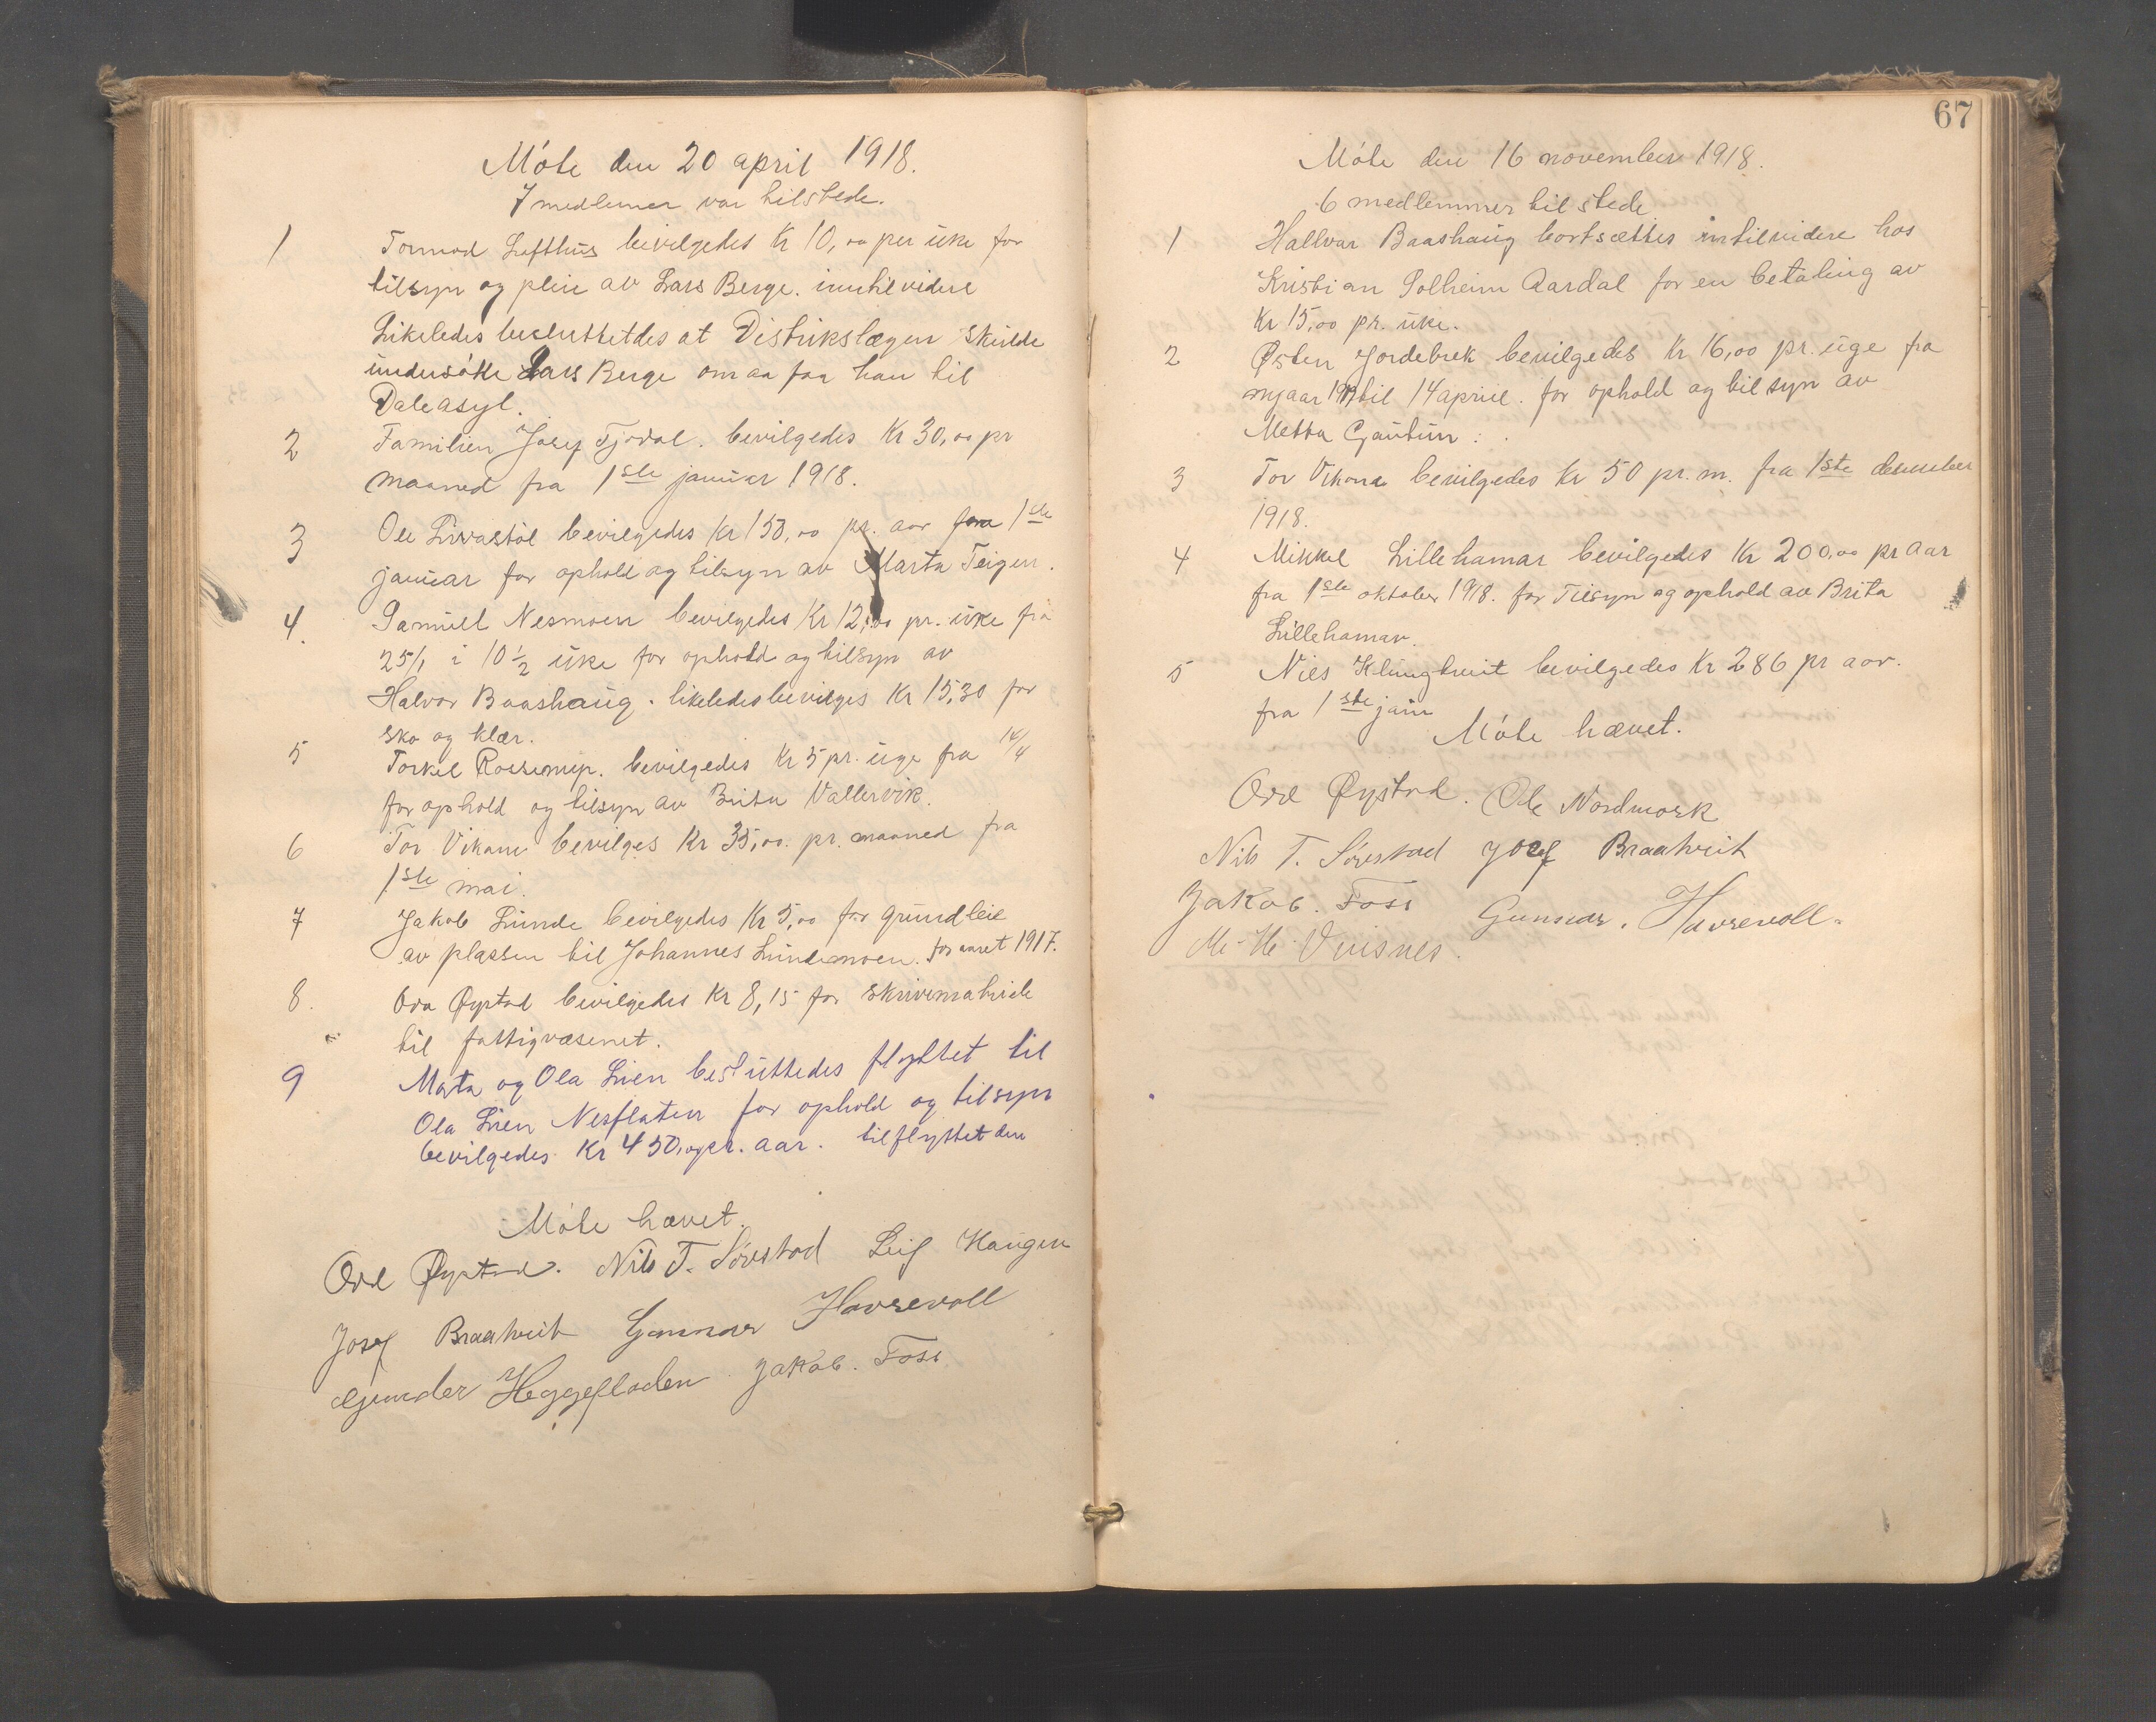 Møte den 20 april 1918.
7 medlemer var tilstede.
1 Tormod Lofthus bevilgedes Kr 10,00 per uke for
tilsyn og pleie av Lars Berge. inntil videre
Likeledes besluttetdes at Distrikslægen skulde
undersøke Lars Berge om aa faa han til
Dale asyl.
2 Familien Josef Tjødal. bevilgedes Kr 30,00 pr
maaned fra 1ste januar 1918.
3 Ole Livastøl bevilgedes Kr 150,00 pr. aar fra 1ste
januar for ophold og tilsyn av Marta Teigen.
4. Samuel Nesmoen bevilgedes Kr 12,00 pr. uke fra
25/1 i 10 1/2 uke for ophold og tilsyn av
Halvor Baashaug. likeledes bevilges Kr 15,30 for
sko og klær.
5 Torkel bevilgedes Kr 5 pr. uge fra 14/4
for ophold og tilsyn av Brita Vallervik.
6 Tor Vikane bevilges Kr 35,00. pr. maaned fra
1ste mai.
7 Jakob Lunde bevilgedes Kr 5,00 for grundleie
av plassen til Johannes Lundemoen. for aaret 1917.
8. Ova Øystad bevilgedes Kr 8,15 for skrivematriele
til fattigvæsenet.
9 Marta og Ola Lien besluttedes flyttet til
Ola Lien Nesflaten for ophold og tilsyn
bevilgedes Kr 450,00 pr. aar. tilflyttet den
Møte hævet.
Ove Øystad. Nils T. Sørestad Leif Haugen
Josef Braatveit Gunnar Havrevoll
Gunder Heggefladen Jakob. Foss
67
Møte den 16 november 1918.
6 medlemmer til stede
1 Hallvar Baashaug bortsættes intilvidere hos
Kristian Solheim Aardal for en betaling av
Kr 15,00 pr. uke.
2 Østen Jordebrek bevilgedes Kr 16,00 pr. uge fra
nyaar 1919 til 14 april. for ophold og tilsyn av
Metta Gautun.
3 Tor Vikane bevilgedes Kr 50 pr. m. fra 1ste desember
1918.
4 Mikkel Lillehamar bevilgedes Kr 200,00 pr aar
fra 1ste oktober 1918. for Tilsyn og ophold av Brita
Lillehamar.
5 Nils Klungtveit bevilgedes Kr 286 pr aar.
fra 1ste jan
Møte hævet.
Ove Øystad. Ole Nordmork
Nils T. Sørestad Josef Braatveit
Jakob. Foss Gunnar. Havrevoll.
M. H. Vinsnes.